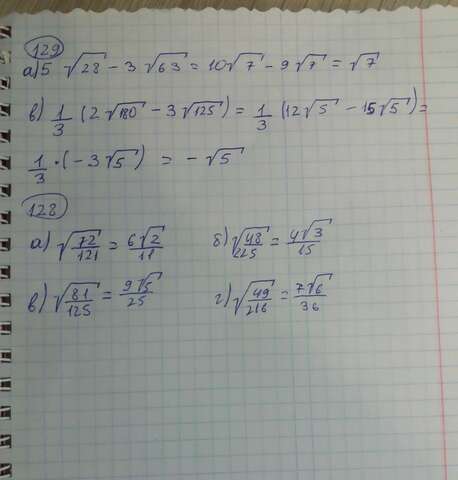 129
а) 5 √28 - 3 √63 = 10√7 - 9√7 = √7
в) 1/3 (2√180 - 3√125) = 1/3 (12√5 - 15√5) =
1/3 · (-3√5) = -√5
128
а) √72/121 = 6√2/11 б) √48/225 = 4√3/15
в) √81/125 = 9√5/25 г) √49/216 = 7√6/36